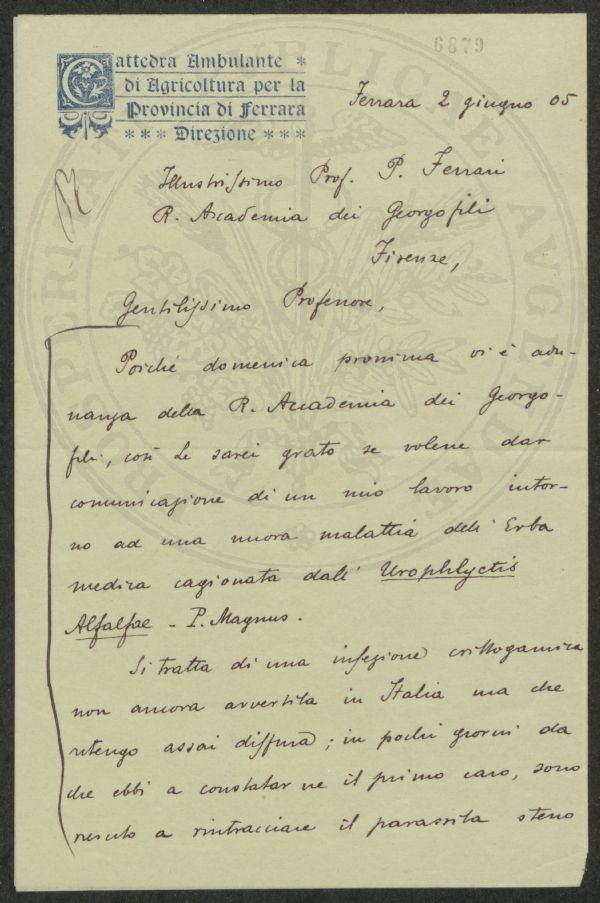 6879
Cattedra Ambulante *
di Agricoltura per la
Provincia di Ferrara
* * * Direzione * * *
Ferrara 2 giugno 05
Illustrissimo Prof. P. Ferrari
R. Accademia dei Georgofili
Firenze,
Gentilissimo Professore,
Poiché domenica prossima vi è adu-
nanza della R. Accademia dei Georgo-
fili, così Le sarei grato se volesse dar
comunicazione di un mio lavoro intor-
no ad una nuova malattia dell' Erba
medica cagionata dall' Urophlyctis
Alfalfae - P. Magnus.
Si tratta di una infezione crittogamica
non ancora avvertita in Italia ma che
ritengo assai diffusa; in pochi giorni da
che ebbi a constatar ne il primo caso, sono
riescito a rintracciare il parassita stesso